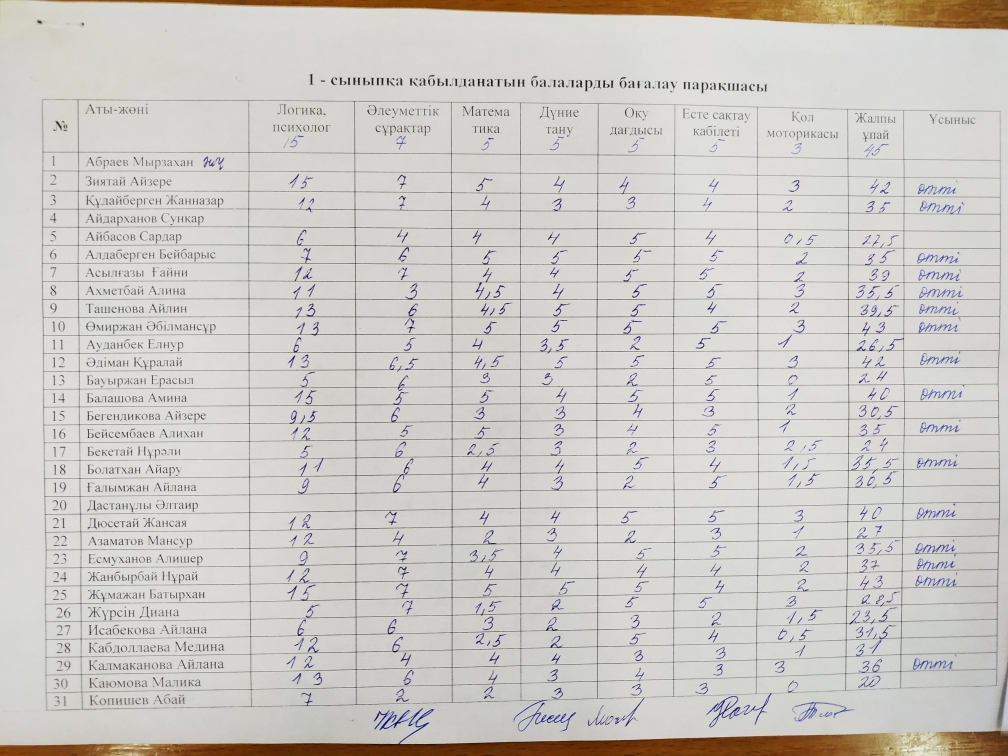 1 - сыныпқа қабылданатын балаларды бағалау парақшасы
№ Аты-жөні Логика, психолог 15 Әлеуметтік сұрақтар 7 Матема тика 5 Дүние тану 5 Оқу дағдысы 5 Есте сақтау қабілеті 5 Қол моторикасы 3 Жалпы ұпай 45 Ұсыныс
1 Абраев Мырзахан жоқ
2 Зиятай Айзере 15 7 5 4 4 4 3 42 өтті
3 Құдайберген Жанназар 12 7 4 3 3 4 2 35 өтті
4 Айдарханов Сункар
5 Айбасов Сардар 6 4 4 4 5 4 0,5 27,5
6 Алдаберген Бейбарыс 7 6 5 5 5 5 2 35 өтті
7 Асылғазы Ғайни 12 7 4 4 5 5 2 39 өтті
8 Ахметбай Алина 11 3 4,5 4 5 5 3 35,5 өтті
9 Ташенова Айлин 13 6 4,5 5 5 4 2 39,5 өтті
10 Өмиржан Әбілмансұр 13 7 5 5 5 5 3 43 өтті
11 Ауданбек Елнур 6 5 4 3,5 2 5 1 26,5
12 Әдіман Құралай 13 6,5 4,5 5 5 5 3 42 өтті
13 Бауыржан Ерасыл 5 6 3 3 2 5 0 24
14 Балашова Амина 15 5 5 4 5 5 1 40 өтті
15 Бегендикова Айзере 9,5 6 3 3 4 3 2 30,5
16 Бейсембаев Алихан 12 5 5 3 4 5 1 35 өтті
17 Бекетай Нұрәли 5 6 2,5 3 2 3 2,5 24
18 Болатхан Айару 11 6 4 4 5 4 1,5 35,5 өтті
19 Ғалымжан Айлана 9 6 4 3 2 5 1,5 30,5
20 Дастанұлы Әлтаир
21 Дюсетай Жансая 12 7 4 4 5 5 3 40 өтті
22 Азаматов Мансур 12 4 2 3 2 3 1 27
23 Есмуханов Алишер 9 7 3,5 4 5 5 2 35,5 өтті
24 Жанбырбай Нұрай 12 7 4 4 4 4 2 37 өтті
25 Жұмажан Батырхан 15 7 5 5 5 4 2 43 өтті
26 Жүрсін Диана 5 7 1,5 2 5 5 3 28,5
27 Исабекова Айлана 6 6 3 2 3 2 1,5 23,5
28 Кабдоллаева Медина 12 6 2,5 2 5 4 0,5 31,5
29 Калмаканова Айлана 12 4 4 4 3 3 1 31
30 Каюмова Малика 13 6 4 3 4 3 3 36 өтті
31 Копишев Абай 7 2 2 3 3 3 0 20